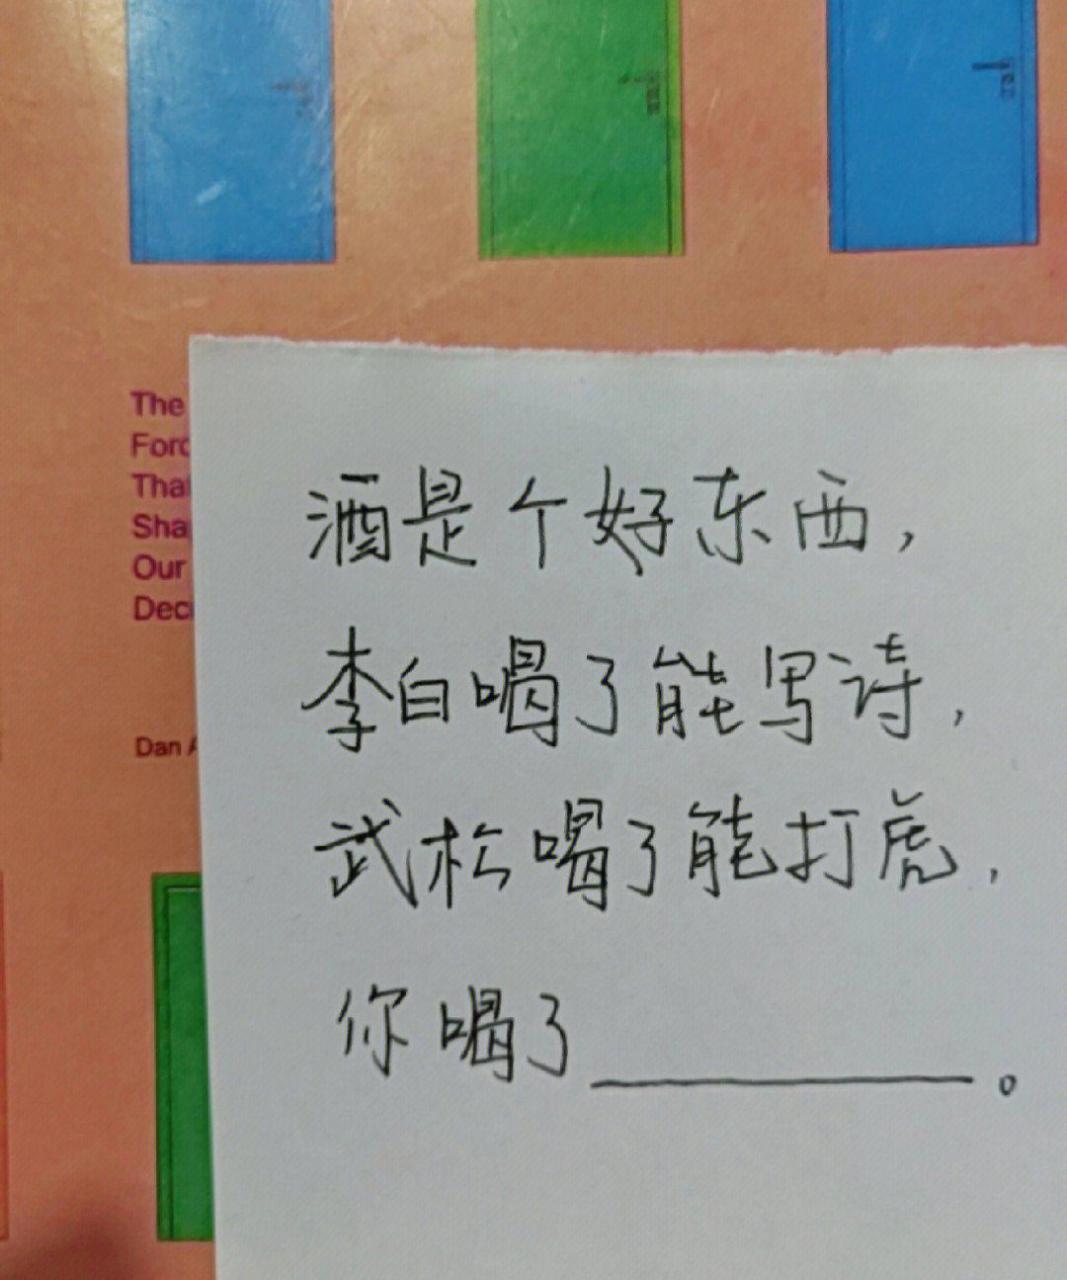 The
Forc
That
Sha
Our
Deci
Dan A
酒是个好东西，
李白喝了能写诗，
武松喝了能打虎，
你喝了__________。